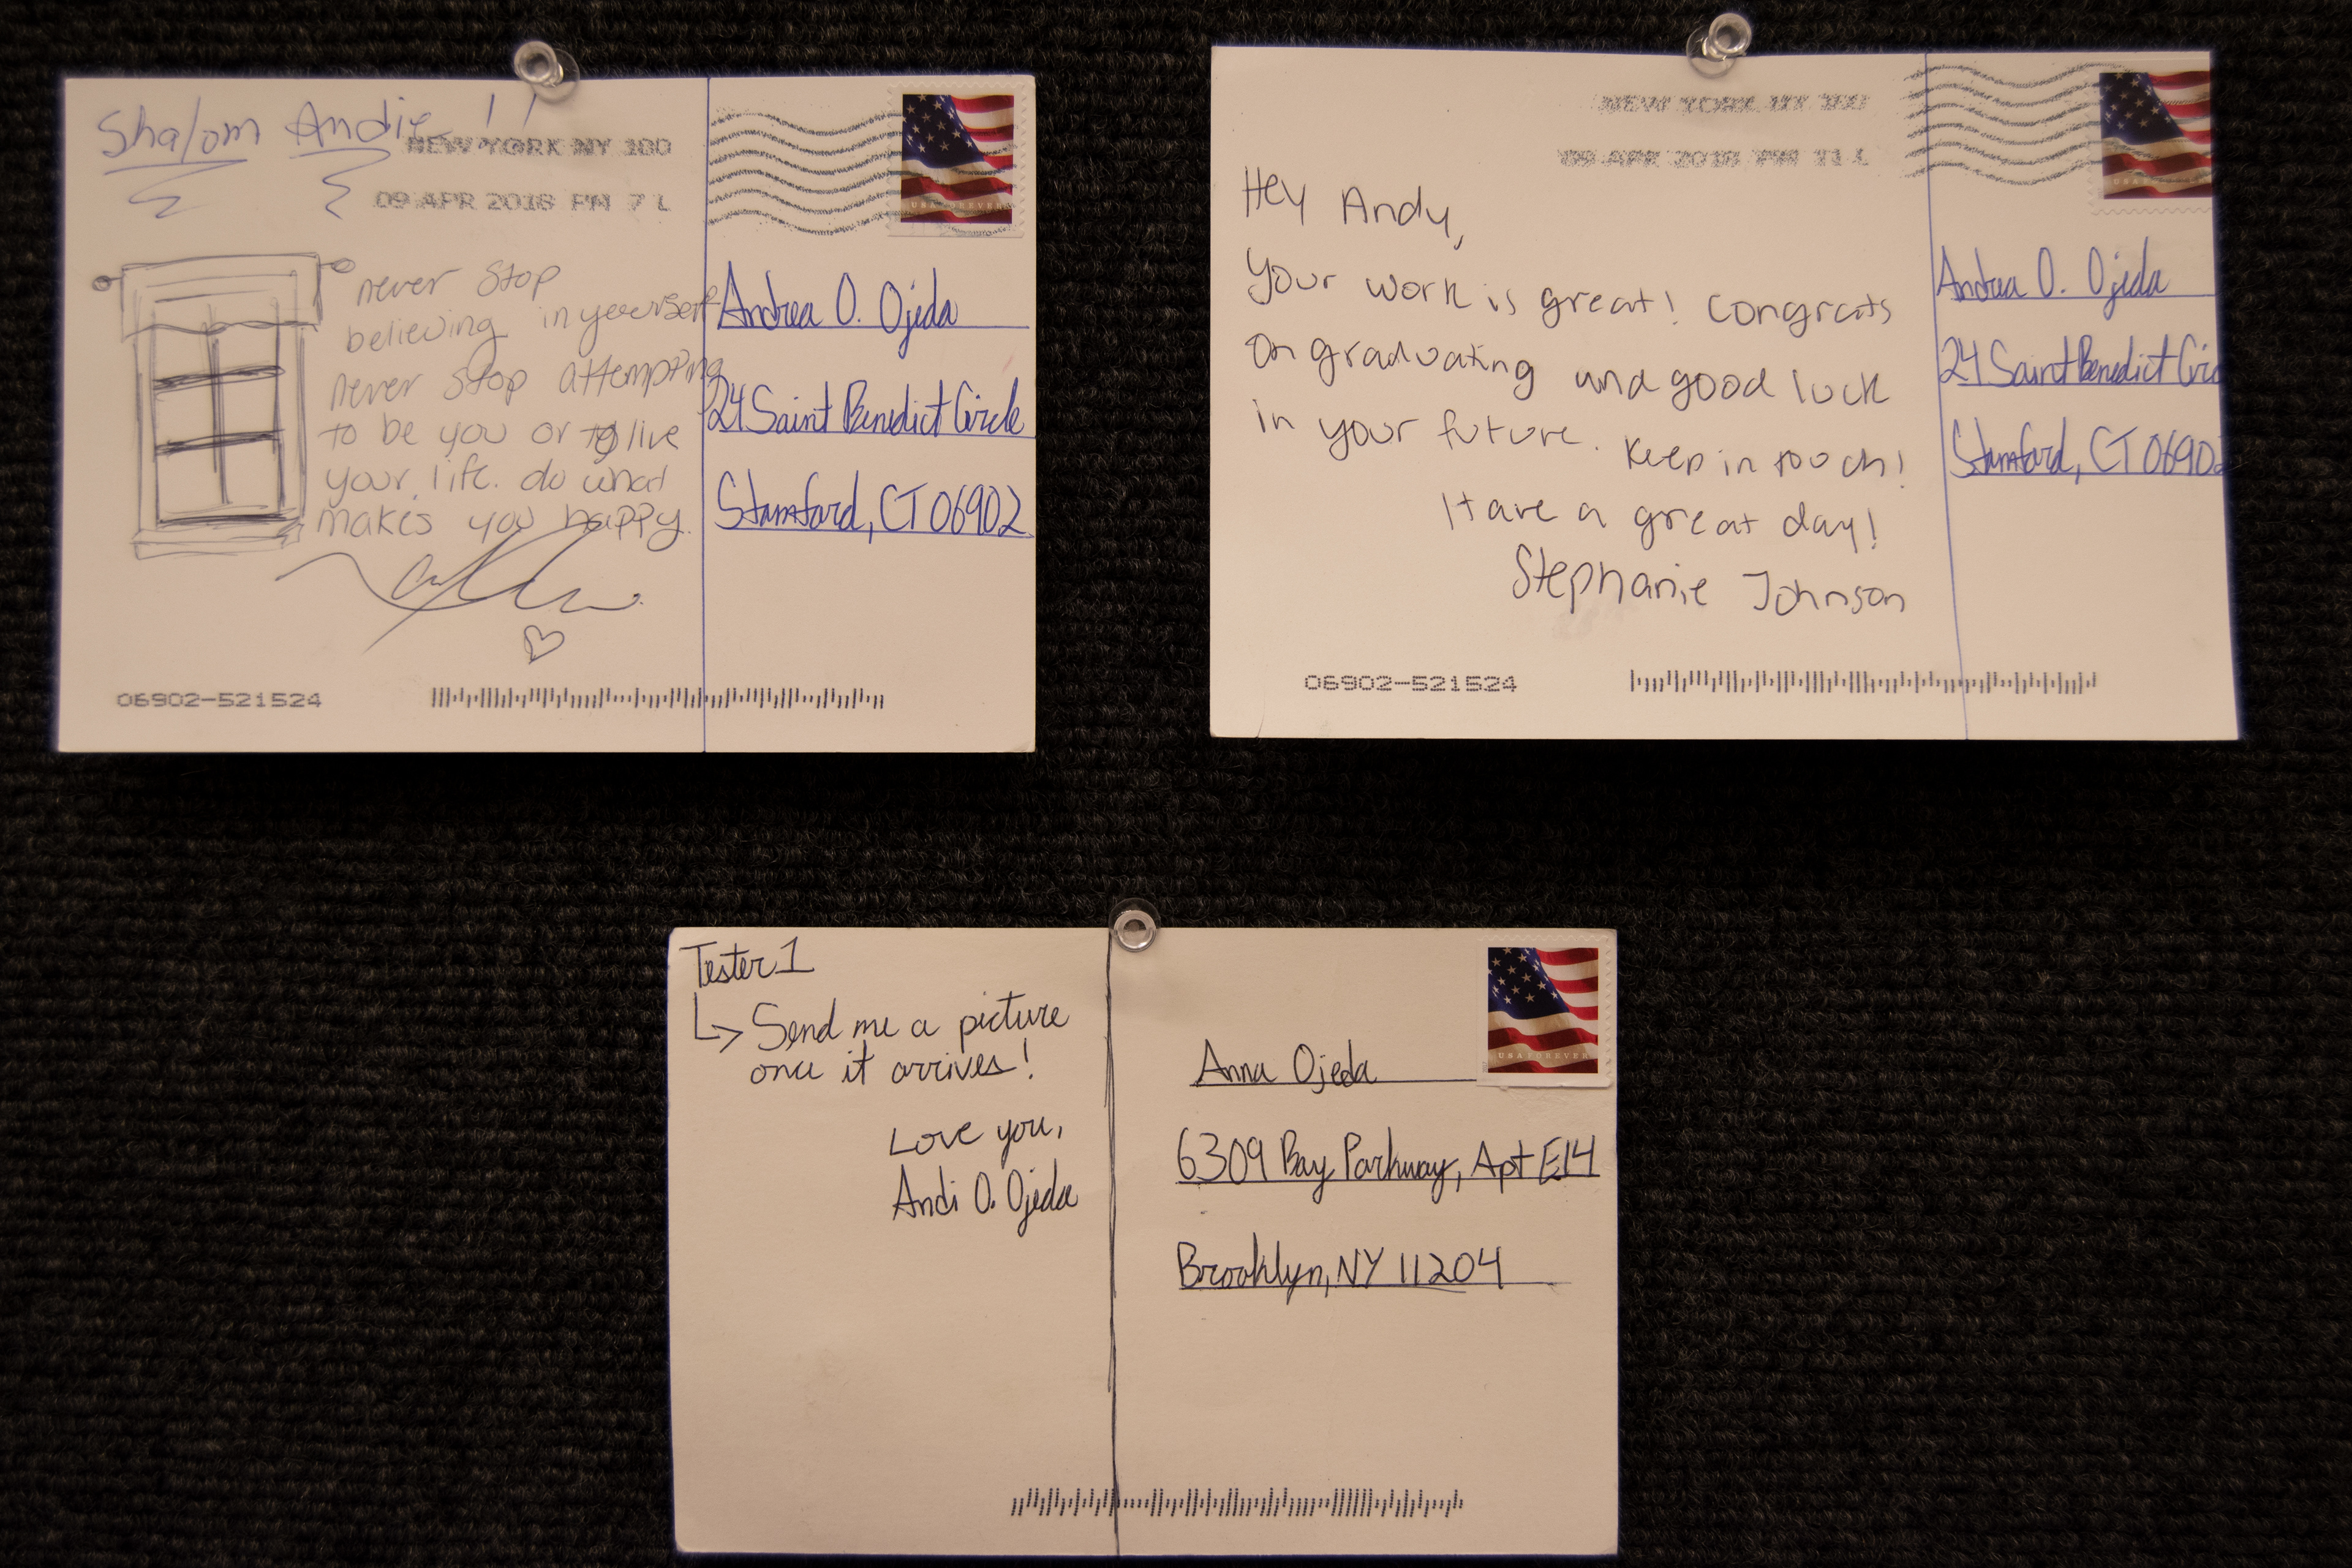 Shalom Andie !!
NEW YORK NY 100
09 APR 2018 PM 7 L
never stop
believing in yourself
never stop attempting
to be you or to live
your life. do what
makes you happy.
Andrea O. Ojeda
24 Saint Benedict Circle
Stamford, CT 06902
USA FOREVER
06902-521524
NEW YORK NY 100
09 APR 2018 PM 11 L
Hey Andy,
Your work is great! Congrats
on graduating and good luck
in your future. Keep in touch!
Have a great day!
Stephanie Johnson
Andrea O. Ojeda
24 Saint Benedict Circ
Stamford, CT 06902
06902-521524
Tester 1
Send me a picture
once it arrives!
Love you,
Andi O. Ojeda
USA FOREVER
Anna Ojeda
6309 Bay Parkway, Apt E14
Brooklyn, NY 11204